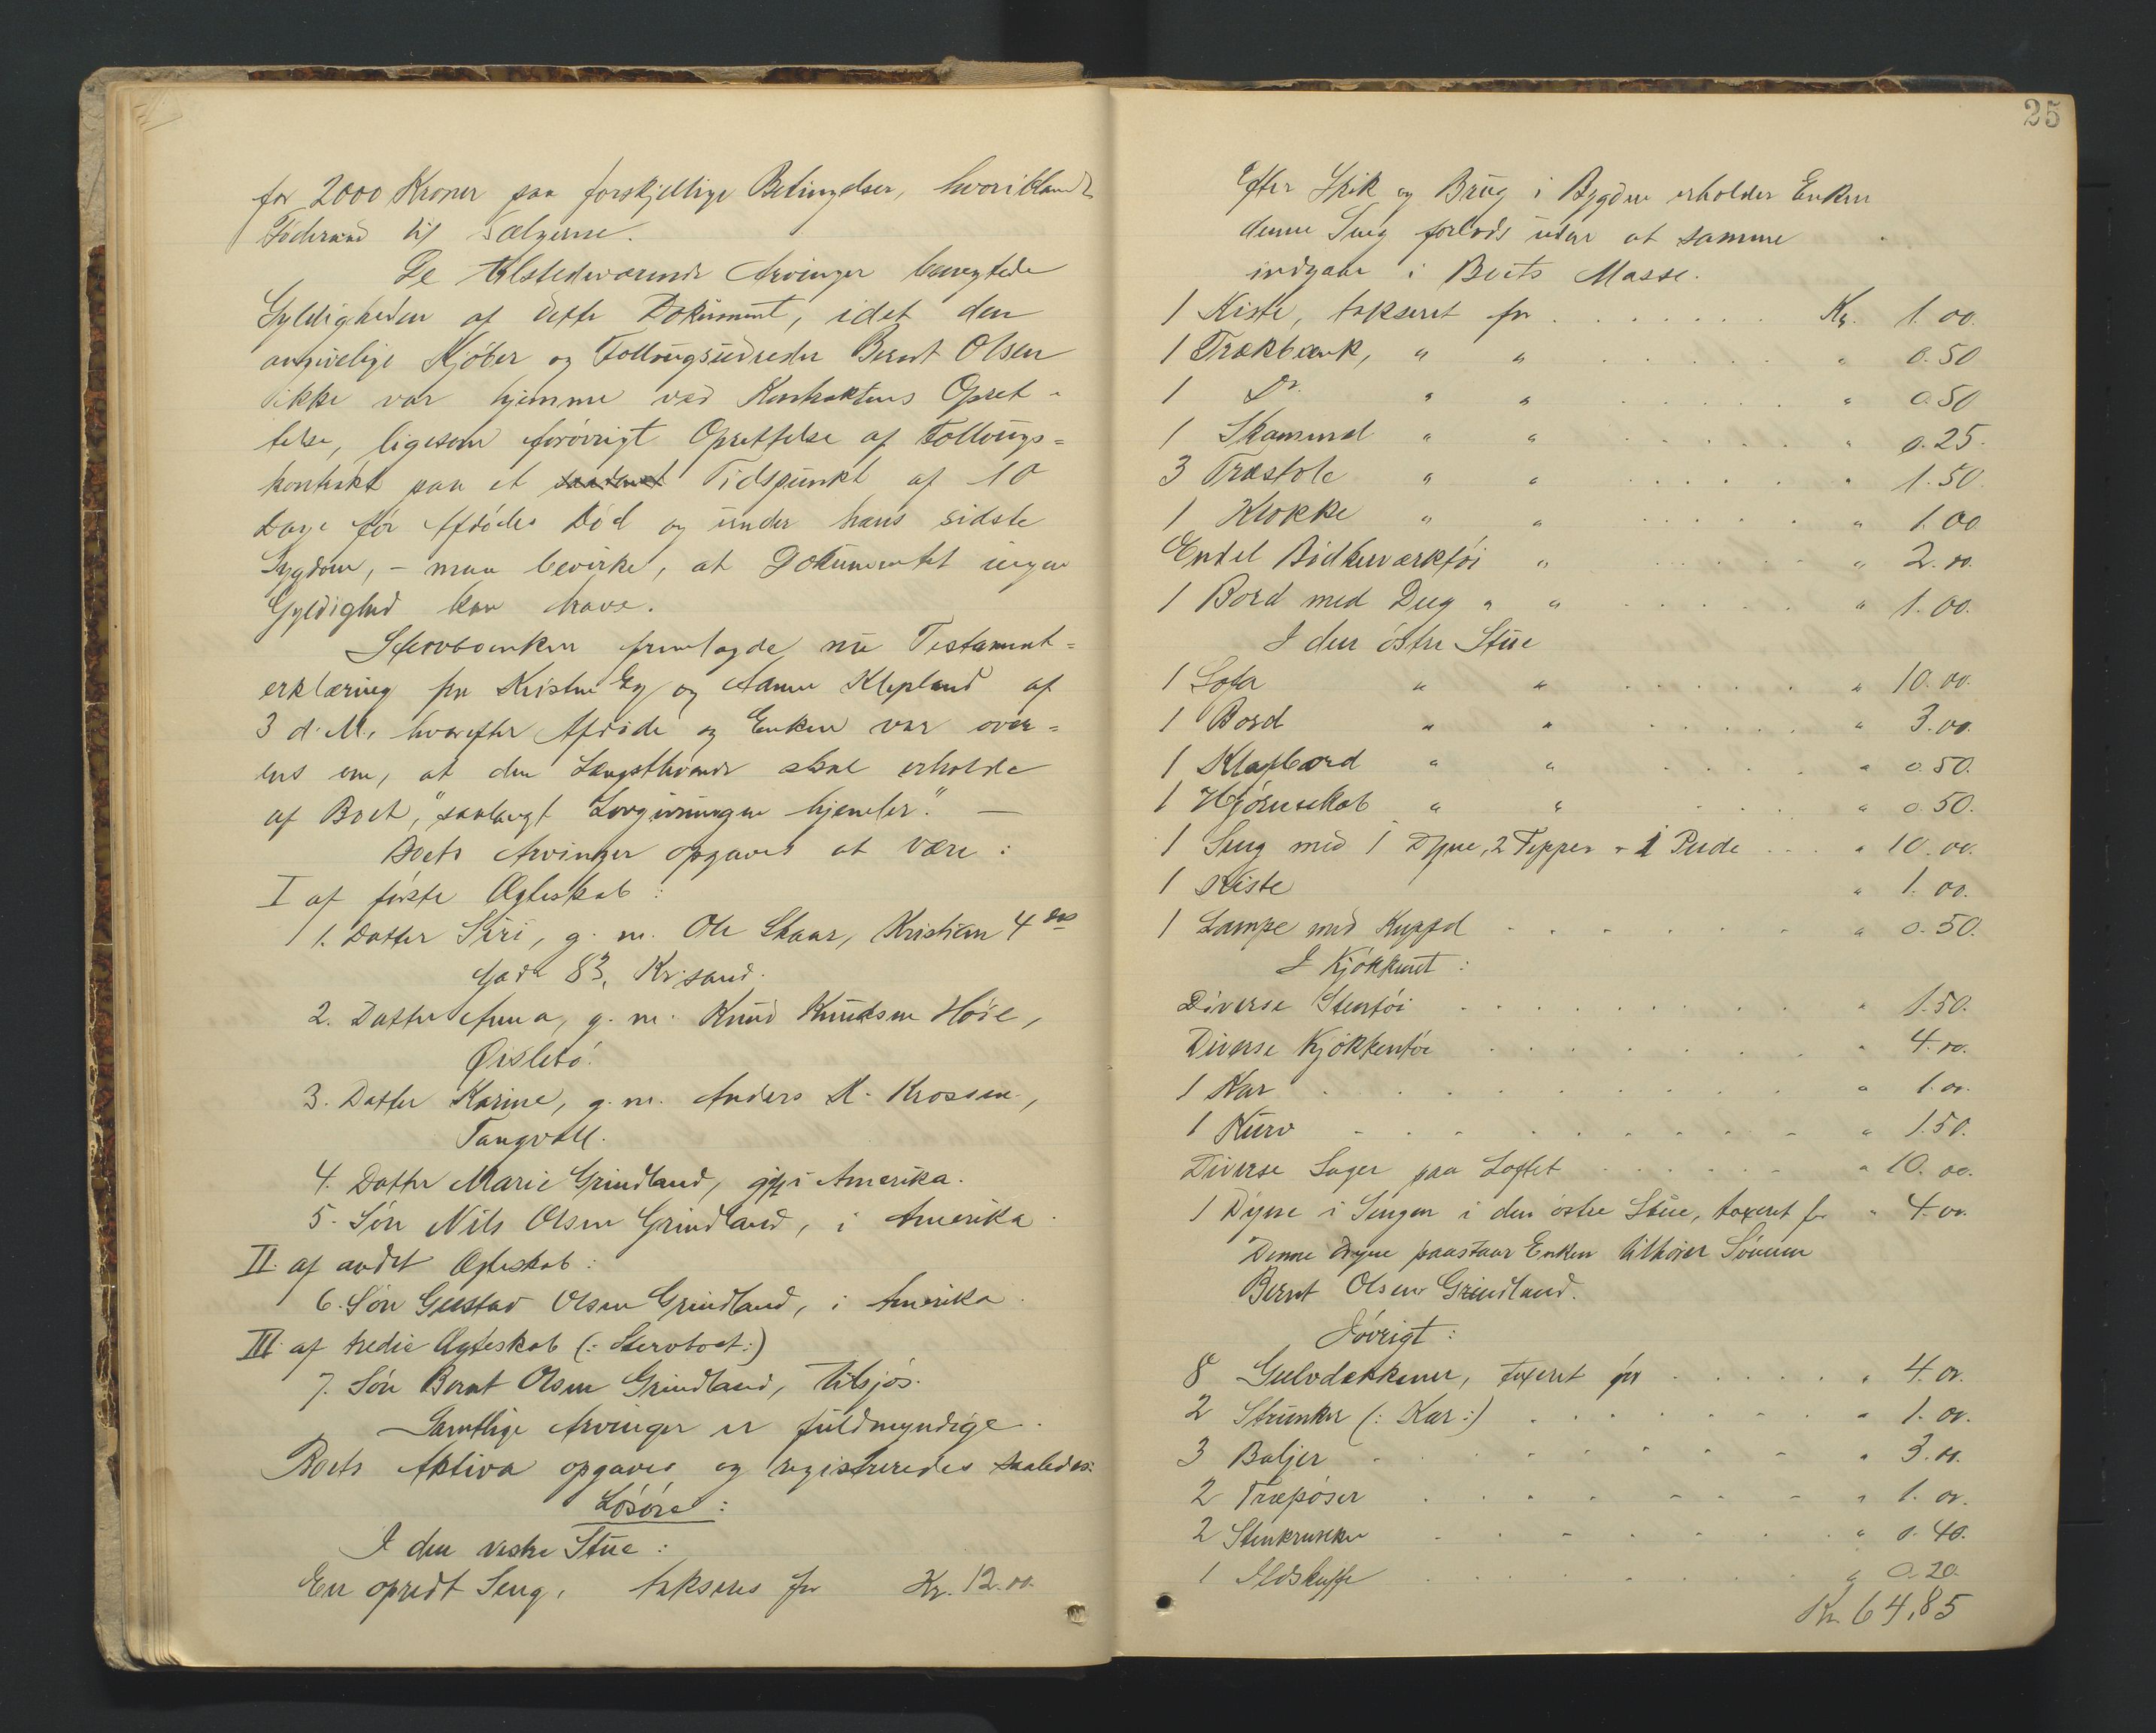 for 2000 Kroner paa forskjellige Betingelser, hvoriblandt
Föderaad til Sælgerne.
De tilstedeværende Arvinger benegtede
Gyldigheden af dette Dokument, idet den
angivelige Kjöber og Follougsudreder Berent Olsen
ikke var hjemme ved Kontraktens Opret-
telse, ligesom forövrigt Oprettelse af Follougs=
kontrakt paa et Tidspunkt af 10
Dage för Afdödes Död og under hans sidste
Sygdom, – maa bevirke, at Dokumentet ingen
Gyldighed kan have.
Stervboenken fremlagde nu Testament=
erklæring fra Kristen Eg og Anna Klepland af
3 d. M., hvorefter Afdöde og Enken var over=
ens om, at den Længstlevende skal erholde
af Boet, "saalangt Lovgivningen hjemler". —
Boets Arvinger opgaves at være:
I af förste Ægteskab:
1. Datter Siri, g. m. Ole Skaar, Kristian 4 des
Gade 83, Kr.sand.
2. Datter Anna, g. m. Knud Knudsen Höie,
Öislebö.
3. Datter Karine, g. m. Anders K. Krossen,
Tangvall.
4. Datter Marie Grindland, gift i Amerika.
5. Sön Nils Olsen Grindland, i Amerika.
II. af andet Ægteskab:
6. Sön Gustav Olsen Grindland, i Amerika.
III. af tredie Ægteskab (: Stervboet:)
7. Sön Bernt Olsen Grindland, tilsjös.
Samtlige Arvinger er fuldmyndige.
Boets Aktiva opgaves og registreredes saaledes:
Lösöre:
I den vestre Stue:
En opredt Seng, takseres for Kr. 12.00
25
Efter Skik og Brug i Bygden erholder Enken
denne Seng forlods uden at samme
indgaar i Boets Masse.
1 Kiste, takseret for . . . . . . . Kr. 1.00.
1 Trækbænk, " " . . . . . " 0.50
1 Do. " " . . . . . " 0.50
1 Skammel " " . . . . . " 0.25.
3 Træstole " " . . . . . " 1.50
1 Klokke " " . . . . . " 1.00
Endel Bödkerværktöi " . . . . . " 2.00.
1 Bord med Dug " " . . . . . " 1.00.
I den östre Stue
1 Sofa " " . . . . . " 10.00.
1 Bord " " . . . . . " 3.00.
1 Klapbord " " . . . . " 0.50.
1 Hjörneskab " " . . . " 0.50.
1 Seng med 1 Dyne, 2 Tepper + 1 Pude . . . " 10.00.
1 Kiste " 1.00.
1 Lampe med Kuppel . . . . . . . " 0.50.
I Kjökkenet:
Diverse Stentöi . . . . . . . . " 1.50.
Diverse Kjökkentöi . . . . . . . " 4.00.
1 Kar . . . . . . . . . " 1.00.
1 Kurv . . . . . . . . . " 1.50.
Diverse Sager paa Loftet . . . . . . " 10.00.
1 Dyne i Sengen i den östre Stue, taxeret for " 4.00.
Denne Dyne paastaar Enken tilhörer Sönnen
Bernt Olsen Grindland.
Iövrigt:
8 Gulvdækkener, taxeret for . . . . . . " 4.00.
2 Strunker (: Kar :) . . . . . . . " 1.00.
3 Baljer . . . . . . . . " 3.00.
2 Træpöser . . . . . . . . " 1.00.
2 Stenkrukker . . . . . . . " 0.40.
1 Ildskuffe . . . . . . . . " 0.20.
Kr. 64,85